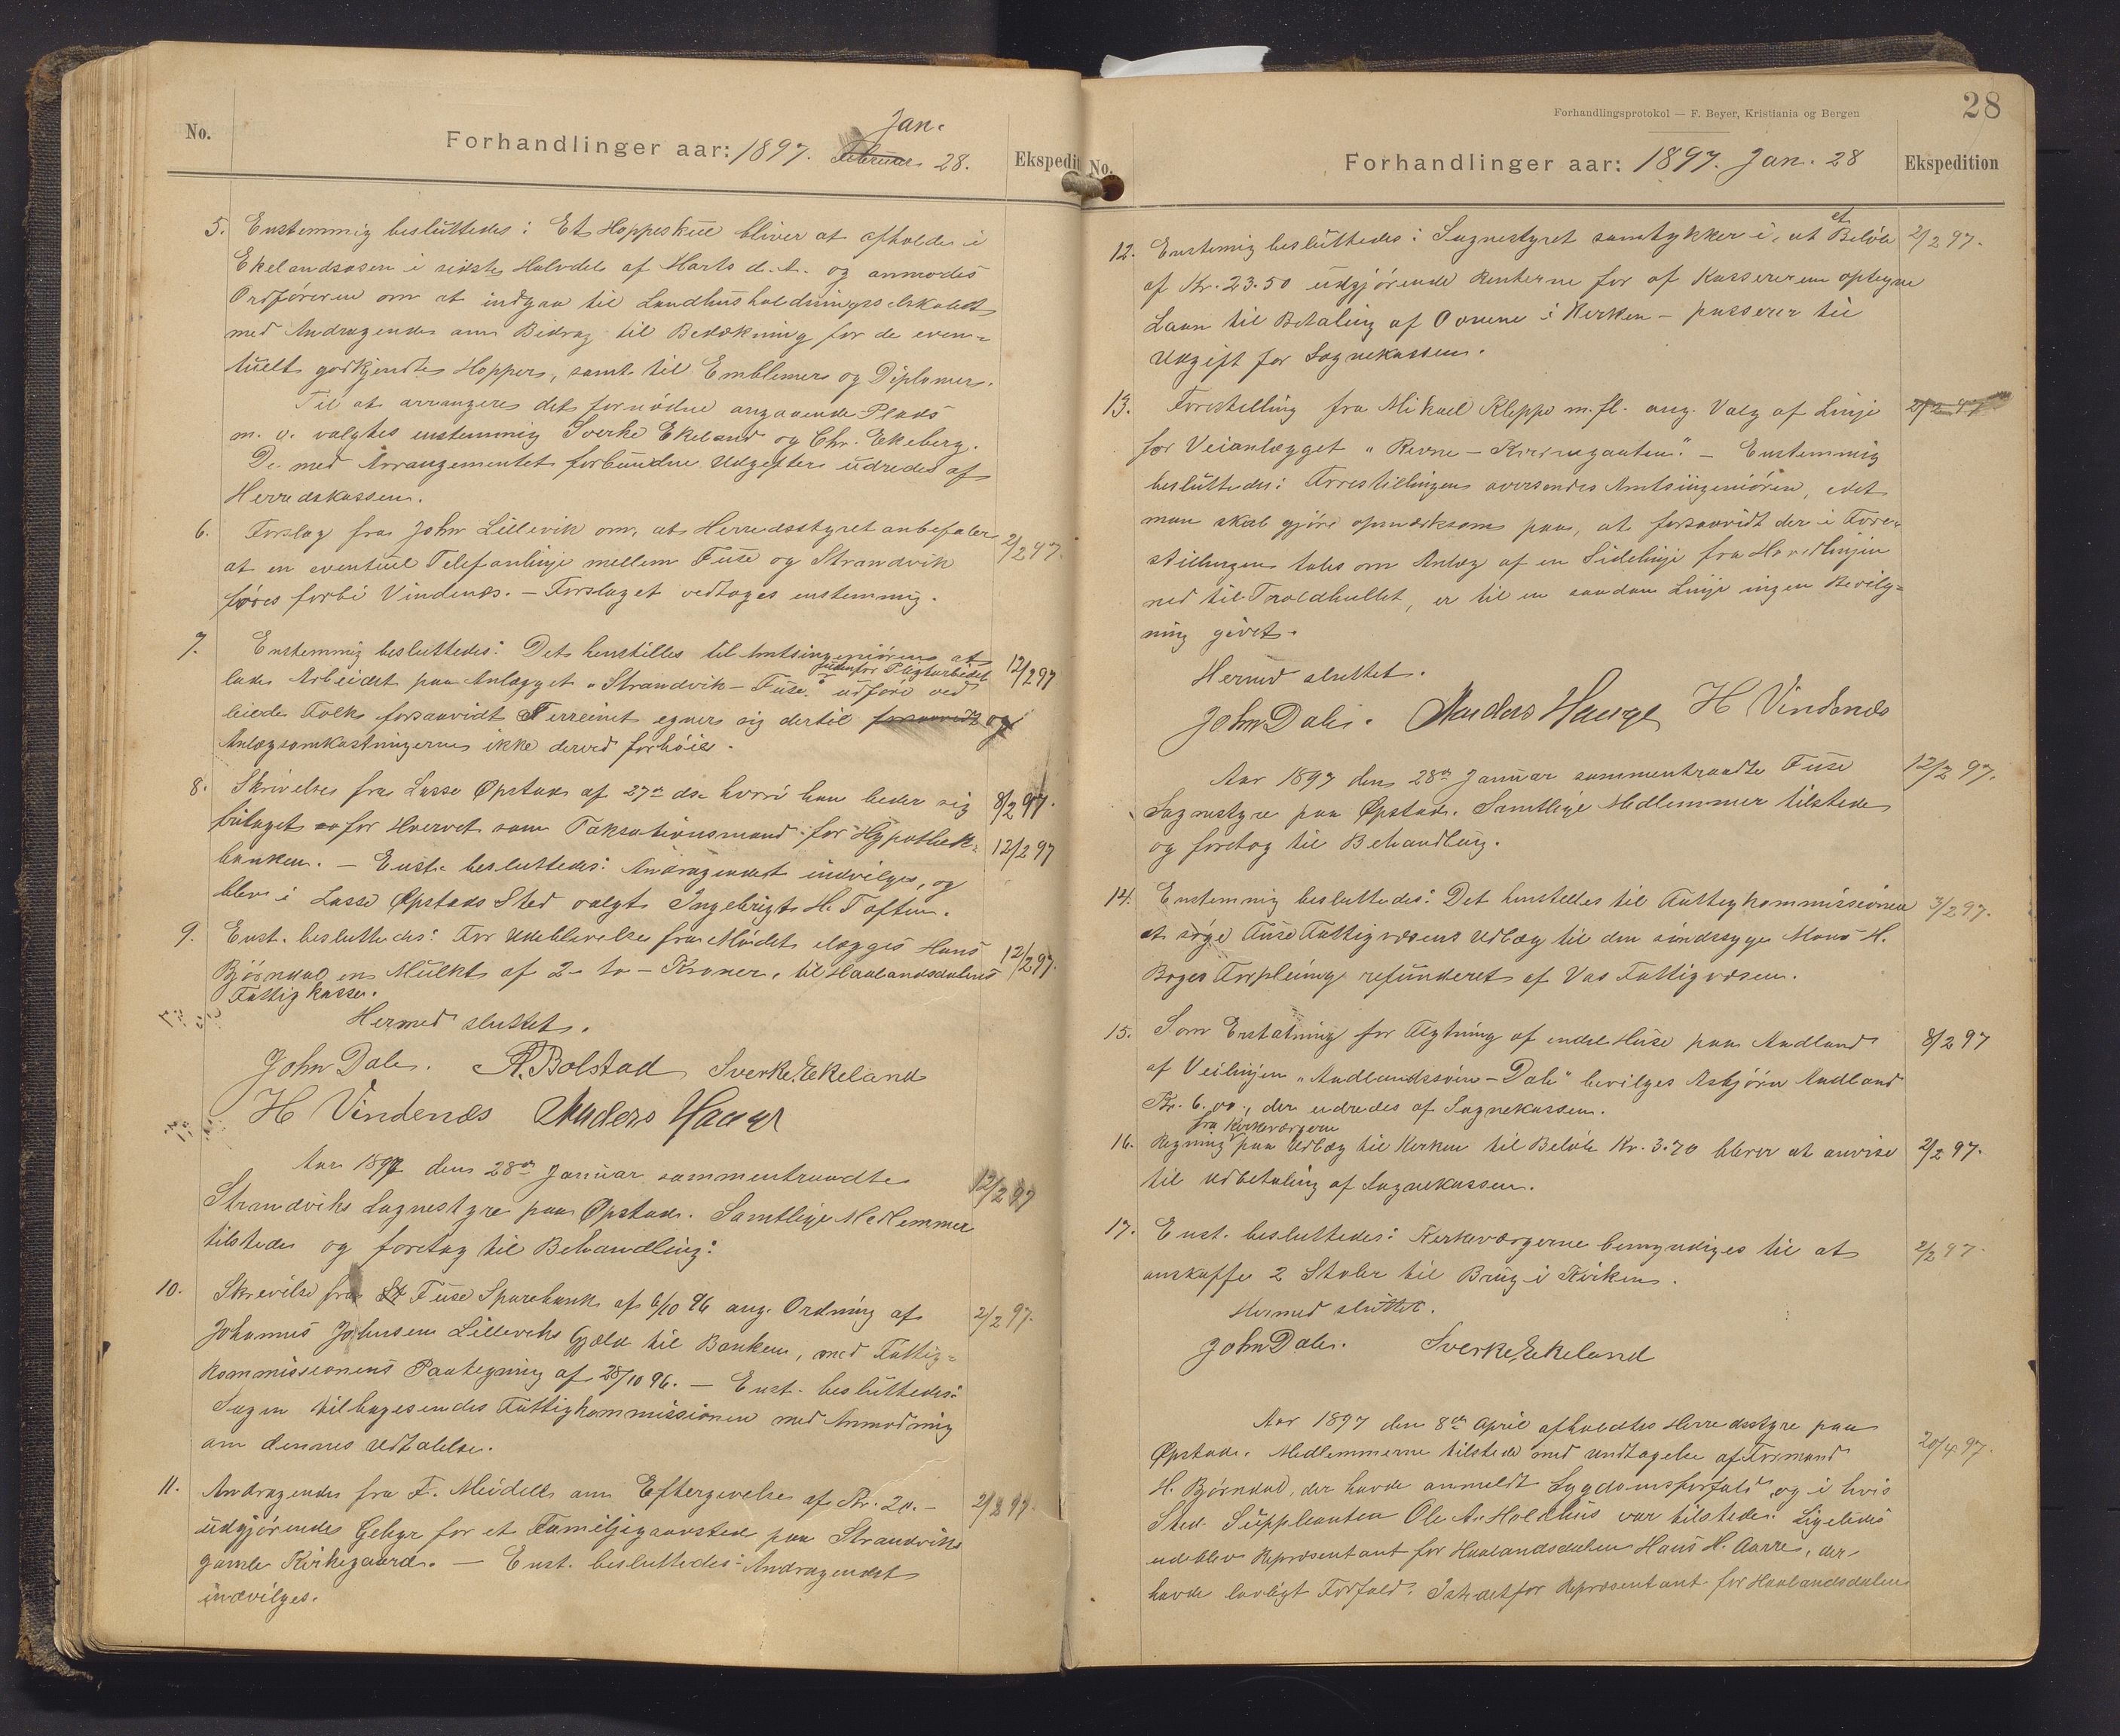 No.
Forhandlinger aar: 1897. Februar Jan. 28.
Ekspedit
5. Enstemmig besluttedes: Et Hoppeskue bliver at afholde i
Ekelandsosen i sidste Halvdel af Marts d. A. og anmodes
Ordføreren om at indgaa til Landhusholdningsselskabet
med Andragende om Bidrag til Bedækning for de even-
tuelt godkjendte Hopper, samt til Emblemer og Diplomer.
Til at arrangere det fornødne angaaende Plads
m. v. valgtes enstemmig Sverke Ekeland og Chr. Ekeberg.
De med Arrangementet forbundne Udgifter udredes af
Herredskassen.
6. Forslag fra John Lillevik om, at Herredsstyret anbefaler 2/2 97.
at en eventuel Telefonlinje mellem Fuse og Strandvik
føres forbi Vindenæs. - Forslaget vedtages enstemmig.
7. Enstemmig besluttedes: Det henstilles til Amtsingeniøren at 12/2 97
lade Arbeidet paa Anlægget "Strandvik - Fuse" udenfor Pligtarbeidet udføre ved
leiede Folk forsaavidt Terreinet egner sig dertil forsaavidt og
Anlægsomkostningerne ikke derved forhøies.
8. Skrivelse fra Lasse Opstad af 27de ds. hvori han beder sig 8/2 97.
fritaget for Hvervet som Taksationsmand for Hypothek- 12/2 97
banken. - Enst. besluttedes: Andragendet indvilges, og
blev i Lasse Opstads Sted valgt Ingebrigt H. Toften.
9. Enst. besluttedes: For Udeblivelse fra Mødet ilægges Hans 12/2 97.
Bjørndal en Mulkt af 2 - to - Kroner, til Haalandsdalens
Fattigkasse.
Hermed sluttet.
John Dale. A. Bolstad Sverke Ekeland
H Vindenæs Anders Hauge
Aar 1897 den 28de Januar sammentraadte 12/2 97
Strandviks Sognestyre paa Opstad. Samtlige Medlemmer
tilstede og foretog til Behandling:
10. Skrivelse fra Fuse Sparebank af 6/10 96 ang. Ordning af 2/2 97.
Johannes Johnsen Lilleviks Gjæld til Banken, med Fattig-
kommissionens Paategning af 28/10 96. - Enst. besluttedes:
Sagen tilbagesendes Fattigkommissionen med Anmodning
om dennes Udtalelse.
11. Andragende fra F. Meidell om Eftergivelse af Kr. 20.- 2/2 97.
udgjørende Gebyr for et Familjegravsted paa Strandviks
gamle Kirkegaard. - Enst. besluttedes: Andragendet
indvilges.
Forhandlingsprotokol — F. Beyer, Kristiania og Bergen
28
No.
Forhandlinger aar: 1897. Jan. 28
Ekspedition
12. Enstemmig besluttedes: Sognestyret samtykker i, at et Beløb 2/2 97.
af Kr. 23.50 udgjørende Renterne for af Kassereren optagne
Laan til Betaling af Ovnene i Kirken - passerer til
Udgift for Sognekassen.
13. Forestilling fra Mikael Kleppe m. fl. ang. Valg af Linje 2/2 97
for Veianlægget " - ". - Enstemmig
besluttedes: Forestillingen oversendes Amtsingeniøren, idet
man skal gjøre opmærksom paa, at forsaavidt der i Fore-
stillingen tales om Anlæg af en Sidelinje fra Hovedlinjen
ned til Troldhullet, er til en saadan Linje ingen Bevilg-
ning givet.
Hermed sluttet.
John Dale. Anders Hauge H Vindenæs
Aar 1897 den 28de Januar sammentraadte Fuse 12/2 97.
Sognestyre paa Opstad. Samtlige Medlemmer tilstede
og foretog til Behandling.
14. Enstemmig besluttedes: Det henstilles til Fattigkommissionen 3/2 97.
at søge Fuse Fattigvæsens Udlæg til den sindssyge Mons H.
Boges Forpleining refunderet af Vos Fattigvæsen.
15. Som Erstatning for Flytning af endel Huse paa Audland 8/2 97
af Veilinjen "Audlandssøen - Dale" bevilges Asbjørn Audland
Kr. 6.00, der udredes af Sognekassen.
16. Regning fra Kirkeværgerne paa Udlæg til Kirken til Beløb Kr. 3.70 bliver at anvise 2/2 97.
til Udbetaling af Sognekassen.
17. Enst. besluttedes: Kirkeværgerne bemyndiges til at 2/2 97.
anskaffe 2 Stoler til Brug i Kirken.
Hermed sluttet.
John Dale. Sverke Ekeland
Aar 1897 den 8de April afholdtes Herredsstyre paa
Opstad. Medlemmerne tilstede med Undtagelse af Formand 20/4 97.
H. Bjørndal, der havde anmeldt Sygdomsforfald og i hvis
Sted Suppleanten Ole A. Holdhus var tilstede. Ligeledes
udeblev Repræsentant for Haalandsdalen Hans H. Aarre, der
havde lovligt Forfald. Istedetfor Repræsentant for Haalandsdalen